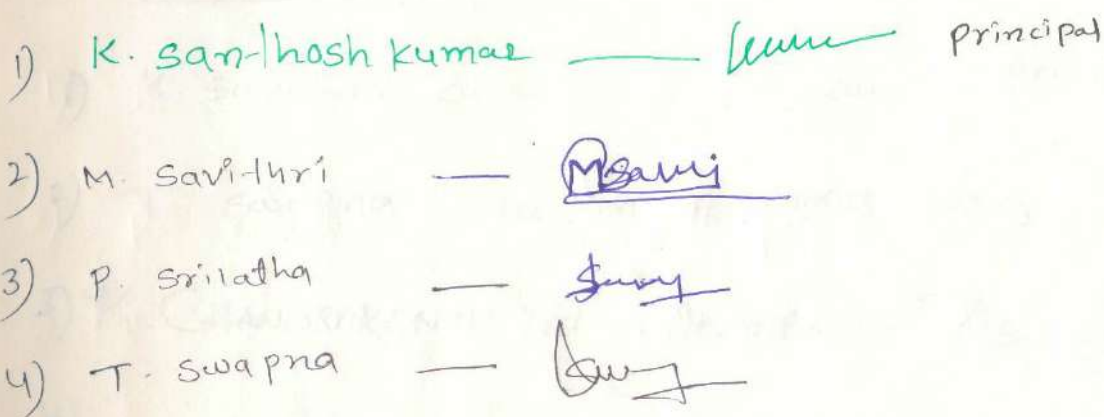 1) K. Santhosh kumar — principal
2) M. Savithri —
3) P. Srilatha —
4) T. Swapna —